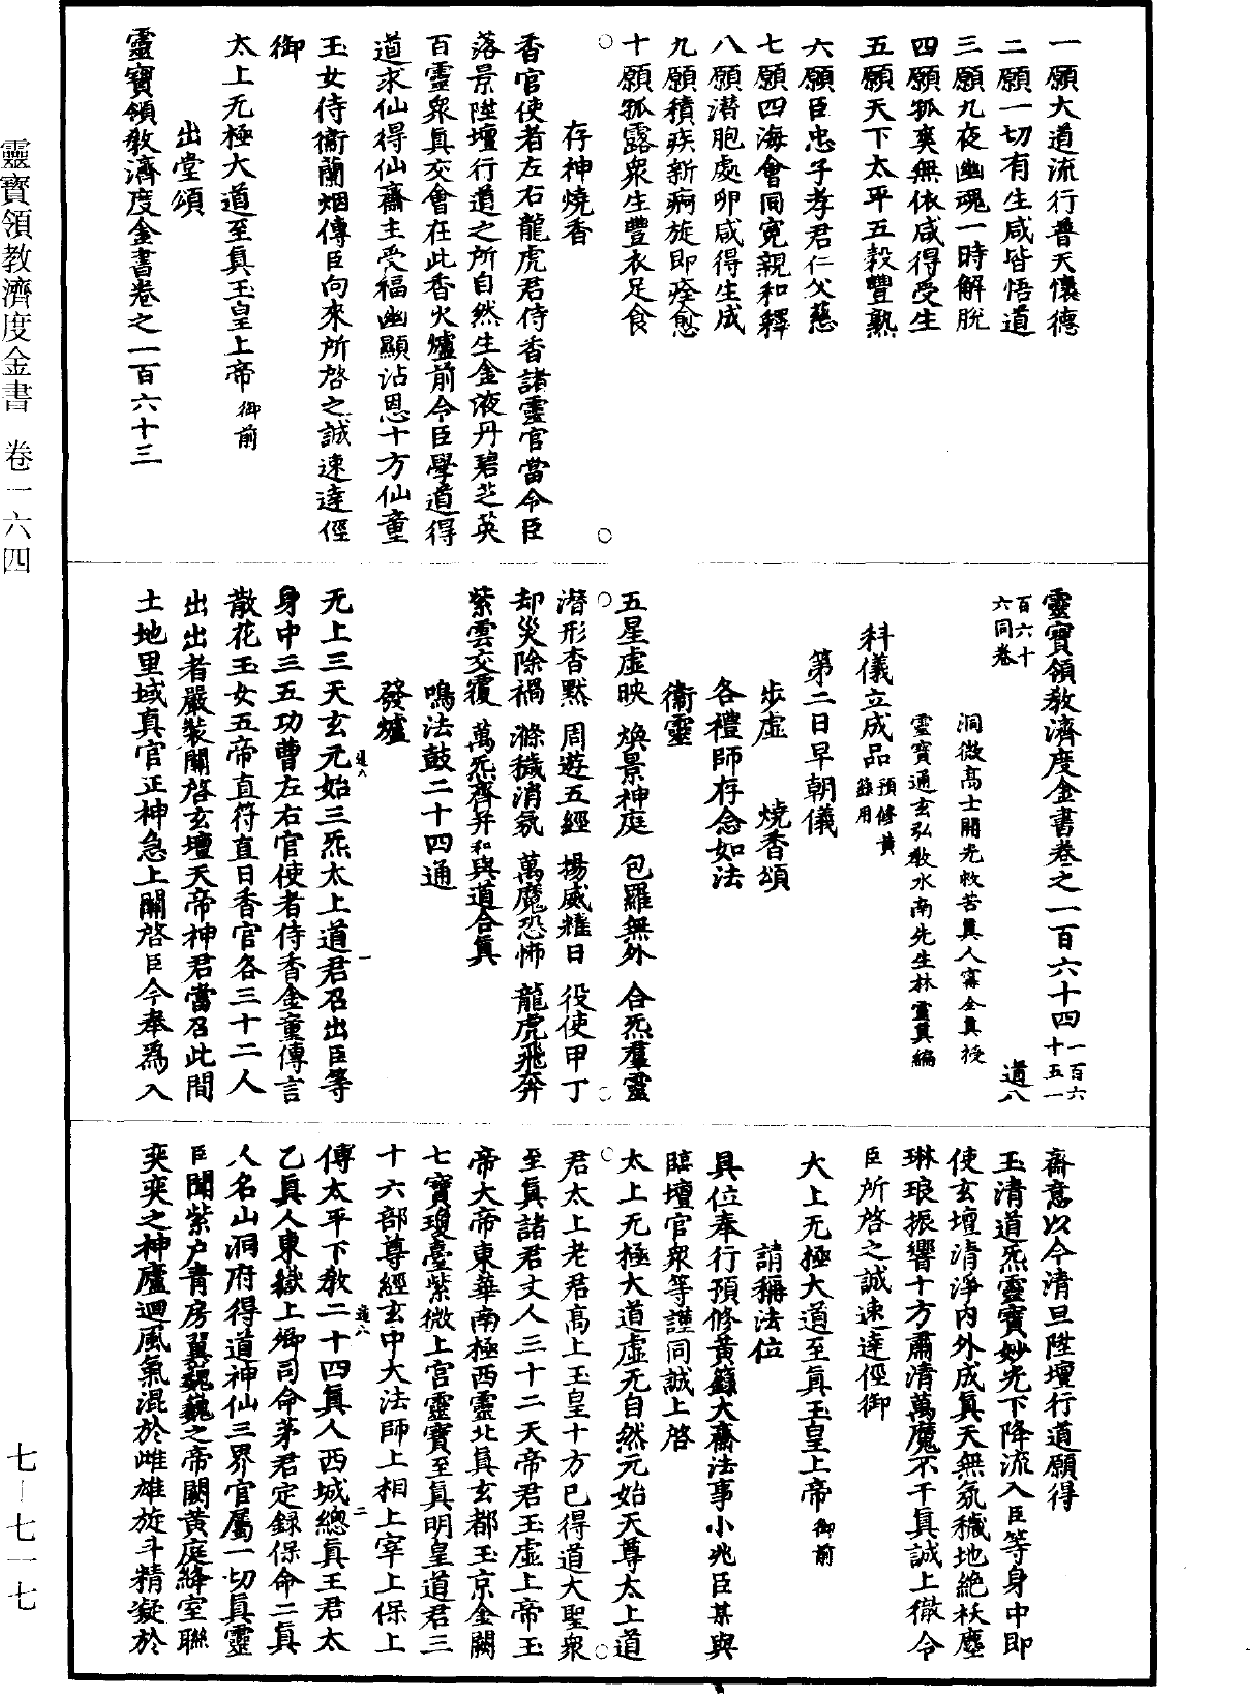 一願大道流行普天懷德
二願一切有生咸皆悟道
三願九夜幽魂一時解脫
四願孤爽無依咸得受生
五願天下太平五穀豐熟
六願臣忠子孝君仁父慈
七願四海會同寃親和釋
八願潛胞處卵咸得生成
九願積疾新痾旋即痊愈
十願孤露眾生豐衣足食
存神燒香
香官使者左右龍虎君侍香諸靈官當令臣
落景陞壇行道之所自然生金液丹碧芝英
百靈眾真交會在此香火爐前令臣學道得
道求仙得仙齋主受福幽顯沾恩十方仙童
玉女侍衞蘭烟傳臣向來所啓之誠速達徑
御
太上无極大道至真玉皇上帝 御前
出堂頌
靈寶領教濟度金書卷之一百六十三
靈寶領教濟度金書卷之一百六十四 一百六十五一百六十六同卷 道八
洞微高士開光救苦真人甯全真授
靈寶通玄弘教水南先生林靈真編
科儀立成品 預修黃籙用
第二日早朝儀
步虛 燒香頌
各禮師存念如法
衞靈
五星虛映 煥景神庭 包羅無外 合炁羣靈
潛形杳默 周遊五經 揚威耀日 役使甲丁
却災除禍 滌穢消氛 萬魔恐怖 龍虎飛奔
紫雲交覆 萬炁齊并和與道合真
鳴法鼓二十四通
發爐
无上三天玄元始三炁太上道君召出臣等
身中三五功曹左右官使者侍香金童傳言
散花玉女五帝直符直日香官各三十二人
出出者嚴裝關啓玄壇天帝神君當召此間
土地里域真官正神急上關啓臣今奉為入
齋意以今清旦陞壇行道願得
玉清道炁靈寶妙光下降流入臣等身中即
使玄壇清淨內外成真天無氛穢地絕秡塵
琳琅振響十方肅清萬魔不干真誠上徹令
臣所啓之誠速達徑御
太上无極大道至真玉皇上帝 御前
請稱法位
具位奉行預修黃籙大齋法事小兆臣某與
臨壇官眾等謹同誠上啓
太上无極大道虛无自然元始天尊太上道
君太上老君高上玉皇十方已得道大聖眾
至真諸君丈人三十二天帝君玉虛上帝玉
帝大帝東華南極西靈北真玄都玉京金闕
七寶瓊臺紫微上宮靈寶至真明皇道君三
十六部尊經玄中大法師上相上宰上保上
傅太平下教二十四真人西城總真王君太
乙真人東嶽上卿司命茅君定錄保命二真
人名山洞府得道神仙三界官屬一切真靈
臣聞紫戶青房翼巍巍之帝闕黃庭絳室聯
奕奕之神廬迴風氣混於雌雄旋斗精凝於
靈寶領教濟度金書 卷一六四
七－七一七